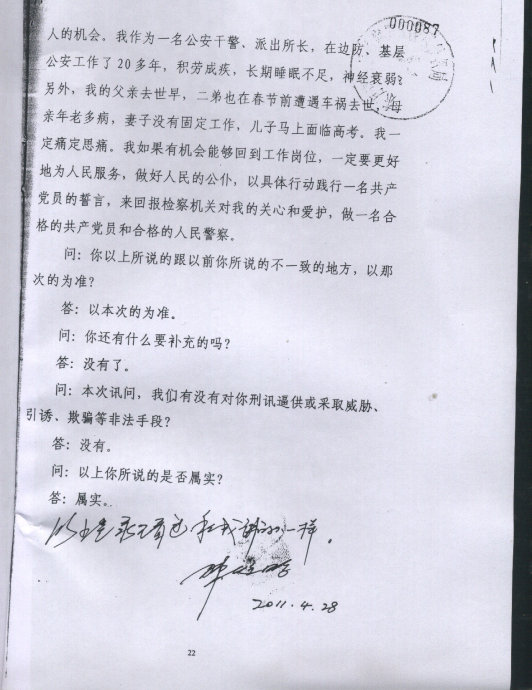 000087
人的机会。我作为一名公安干警、派出所长，在边防、基层
公安工作了20多年，积劳成疾，长期睡眠不足，神经衰弱；
另外，我的父亲去世早，二弟也在春节前遭遇车祸去世，
亲年老多病，妻子没有固定工作，儿子马上面临高考。我一
定痛定思痛。我如果有机会能够回到工作岗位，一定要更好
地为人民服务，做好人民的公仆，以具体行动践行一名共产
党员的誓言，来回报检察机关对我的关心和爱护，做一名合
格的共产党员和合格的人民警察。
问：你以上所说的跟以前你所说的不一致的地方，以那
次的为准？
答：以本次的为准。
问：你还有什么要补充的吗？
答：没有了。
问：本次讯问，我们有没有对你刑讯逼供或采取威胁、
引诱、欺骗等非法手段？
答：没有。
问：以上你所说的是否属实？
答：属实。
以上笔录我看过和我讲的一样。
2011.4.28
22